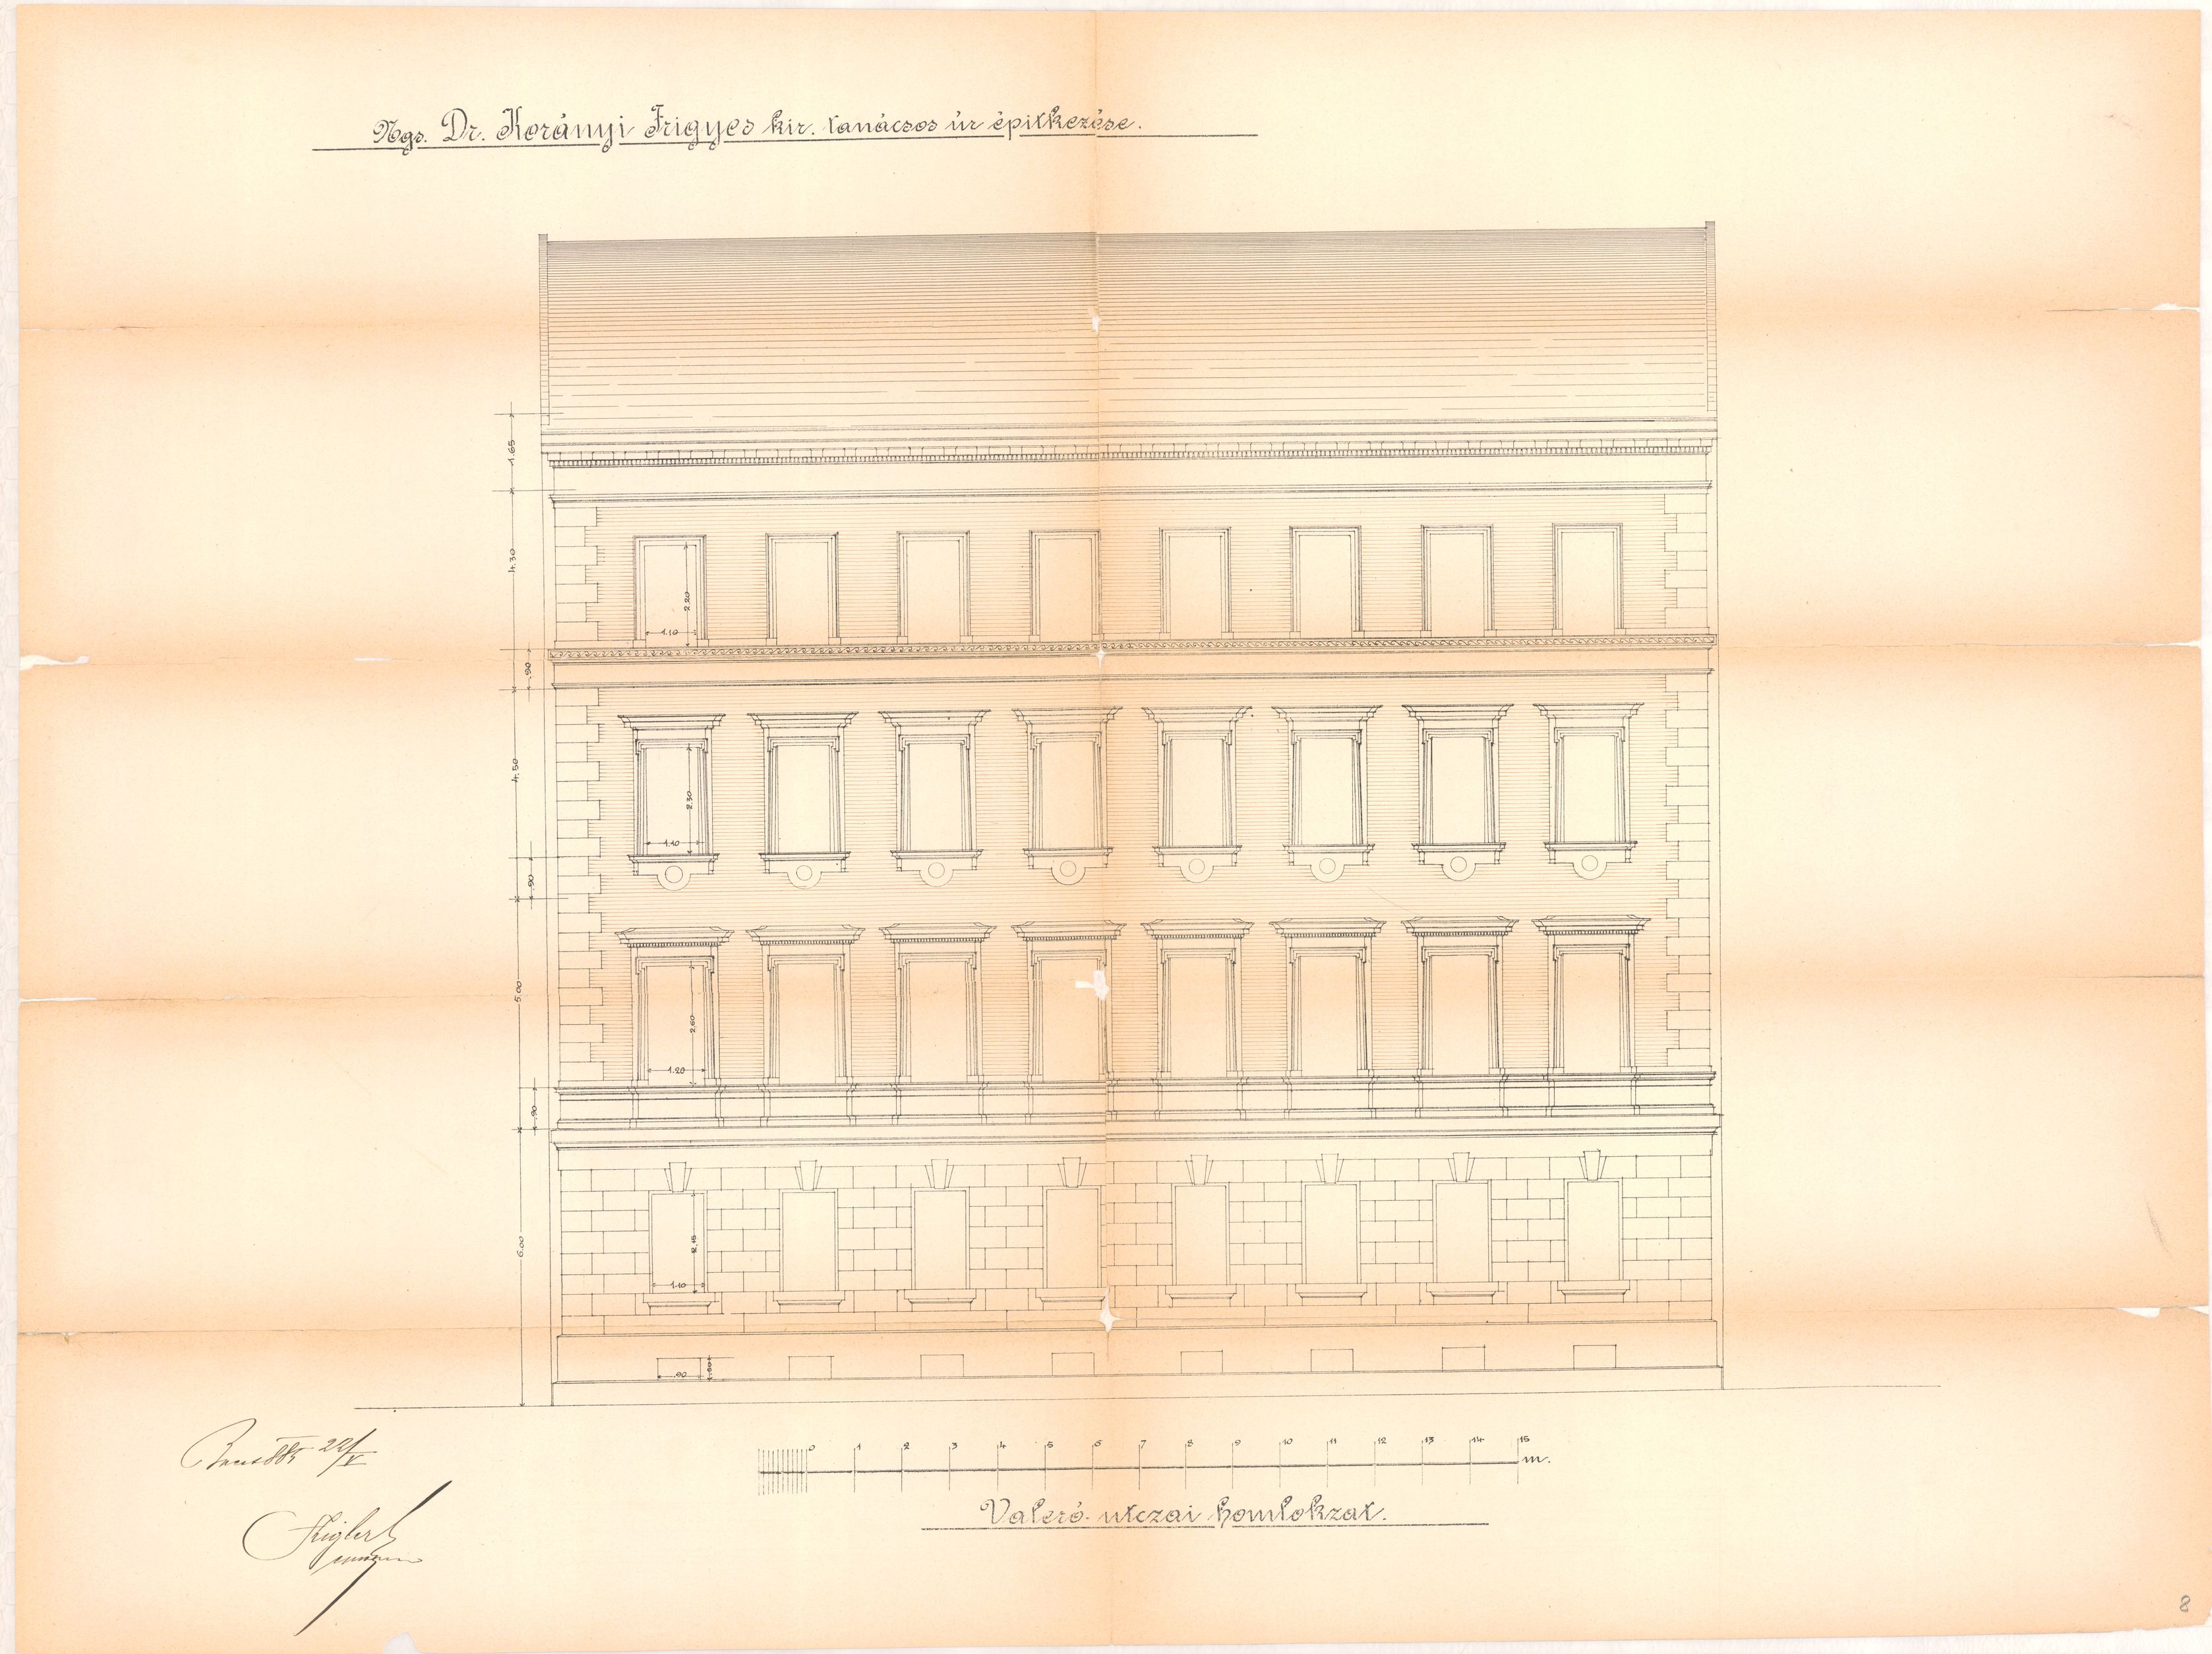 Ngs. Dr. Korányi Frigyes kir. tanácsos úr épitkezése.
1.65
4.30
2.20
1.10
.90
4.50
2.30
1.10
.90
5.00
2.60
1.20
.90
6.00
2.15
1.10
.90
.50
0 1 2 3 4 5 6 7 8 9 10 11 12 13 14 15
m.
Valeró-utczai homlokzat.
22/V
8